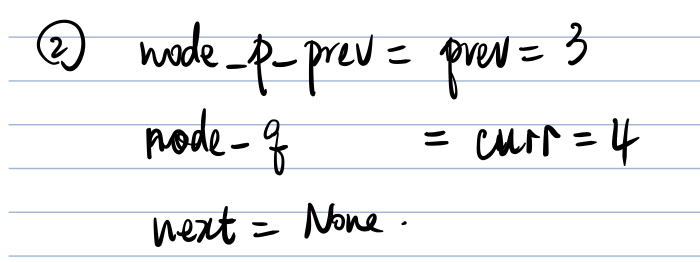 ② node_p_prev = prev = 3
node_q = curr = 4
next = None.